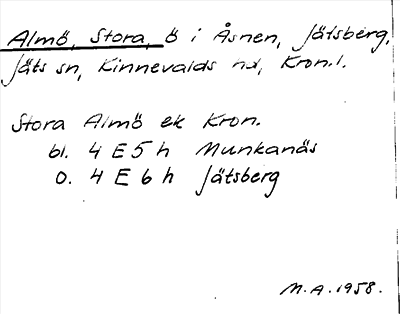 Almö, Stora, ö i Åsnen, Jätsberg,
Jäts sn, Kinnevalds hd, Kron.l.
Stora Almö ek Kron.
bl. 4 E 5 h Munkanäs
o. 4 E 6 h Jätsberg
M.A. 1958.